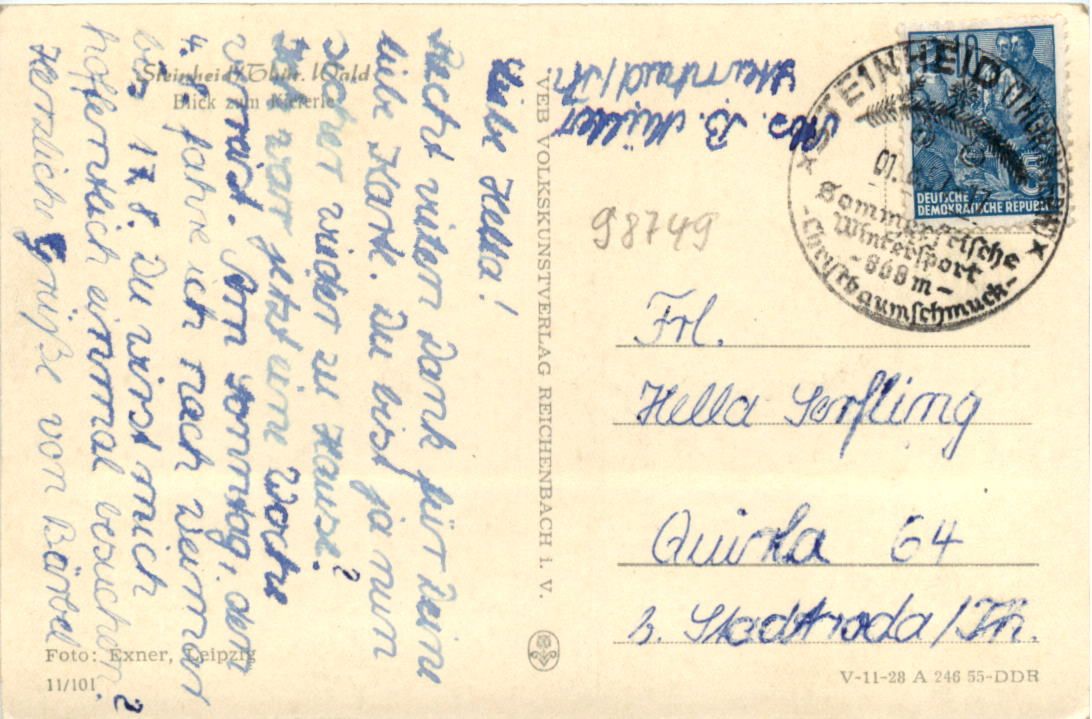 Steinheid/Thür. Wald
Blick zum Kieferle
Liebe Hella!
Recht vielen Dank für Deine
liebe Karte. Du bist ja nun
sicher wieder zu Hause?
Ich war jetzt eine Woche
verreist. Am Sonntag, den
4.8. fahre ich nach Weimar
bis 17.8. Du wirst mich
hoffentlich einmal besuchen?
Herzliche Grüße von Bärbel
Foto: Exner, Leipzig
11/101
VEB VOLKSKUNSTVERLAG REICHENBACH i. V.
Abs. B. Müller
Steinheid/Th.
STEINHEID
Sommerfrische
Wintersport
-868m-
-Christbaumschmuck-
10
5
DEUTSCHE
DEMOKRATISCHE REPUBLIK
98749
Frl.
Hella Serfling
Quirla 64
b. Stadtroda/Th.
V-11-28 A 246 55-DDR